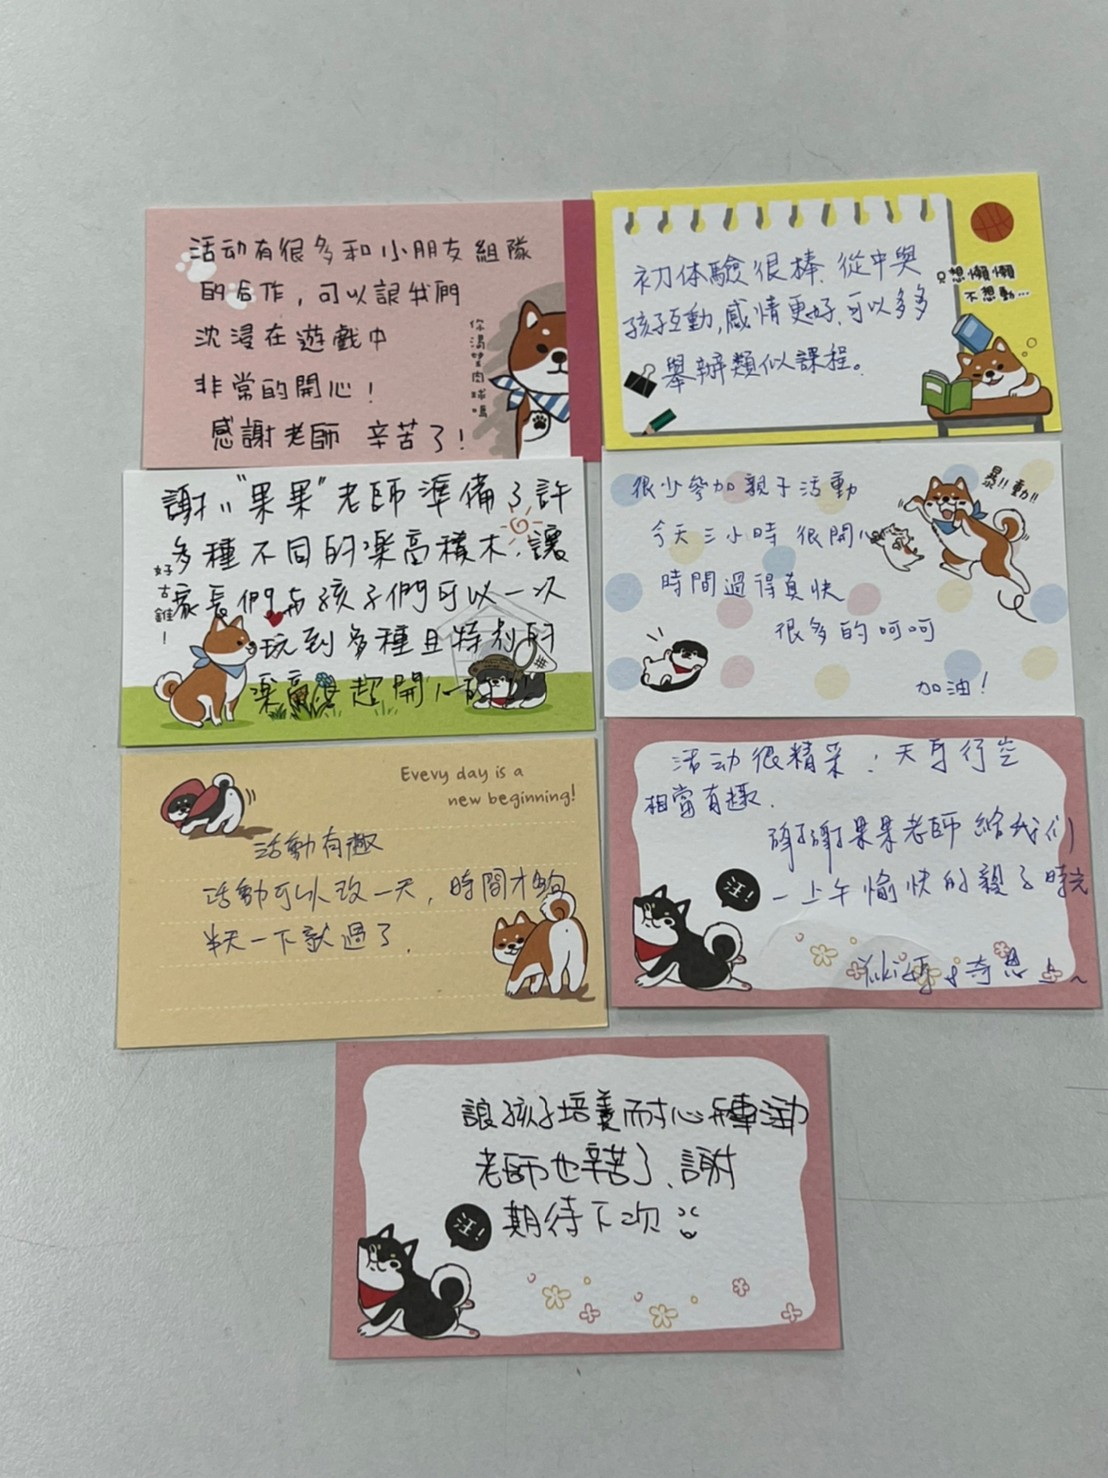 活动有很多和小朋友組隊
的合作，可以讓我們
沈浸在遊戲中
非常的開心！
感謝老師 辛苦了！
你渴望肉球嗎
初体驗很棒、從中與
孩子互動，感情更好、可以多多
舉辦類似課程。
只想懶懶
不想動…
謝〃"果果"老師準備了許
多種不同的楽高積木，讓
家長們与孩子們可以一次
玩到多種且特別的
楽高 超開心
好古錐！
很少參加親子活動
今天三小時很開心
時間過得真快
很多的呵呵
加油！
暴!!動!!
Every day is a
new beginning!
活動有趣
活動可以改一天，時間才夠
半天一下就過了.
活动很精采；天馬行空
相當有趣.
謝謝果果老師給我们
一上午愉快的親子時光
汪!
Yuki媽&奇 上~
讓孩子培養耐心 活动
老師也辛苦了、謝
期待下次
汪!